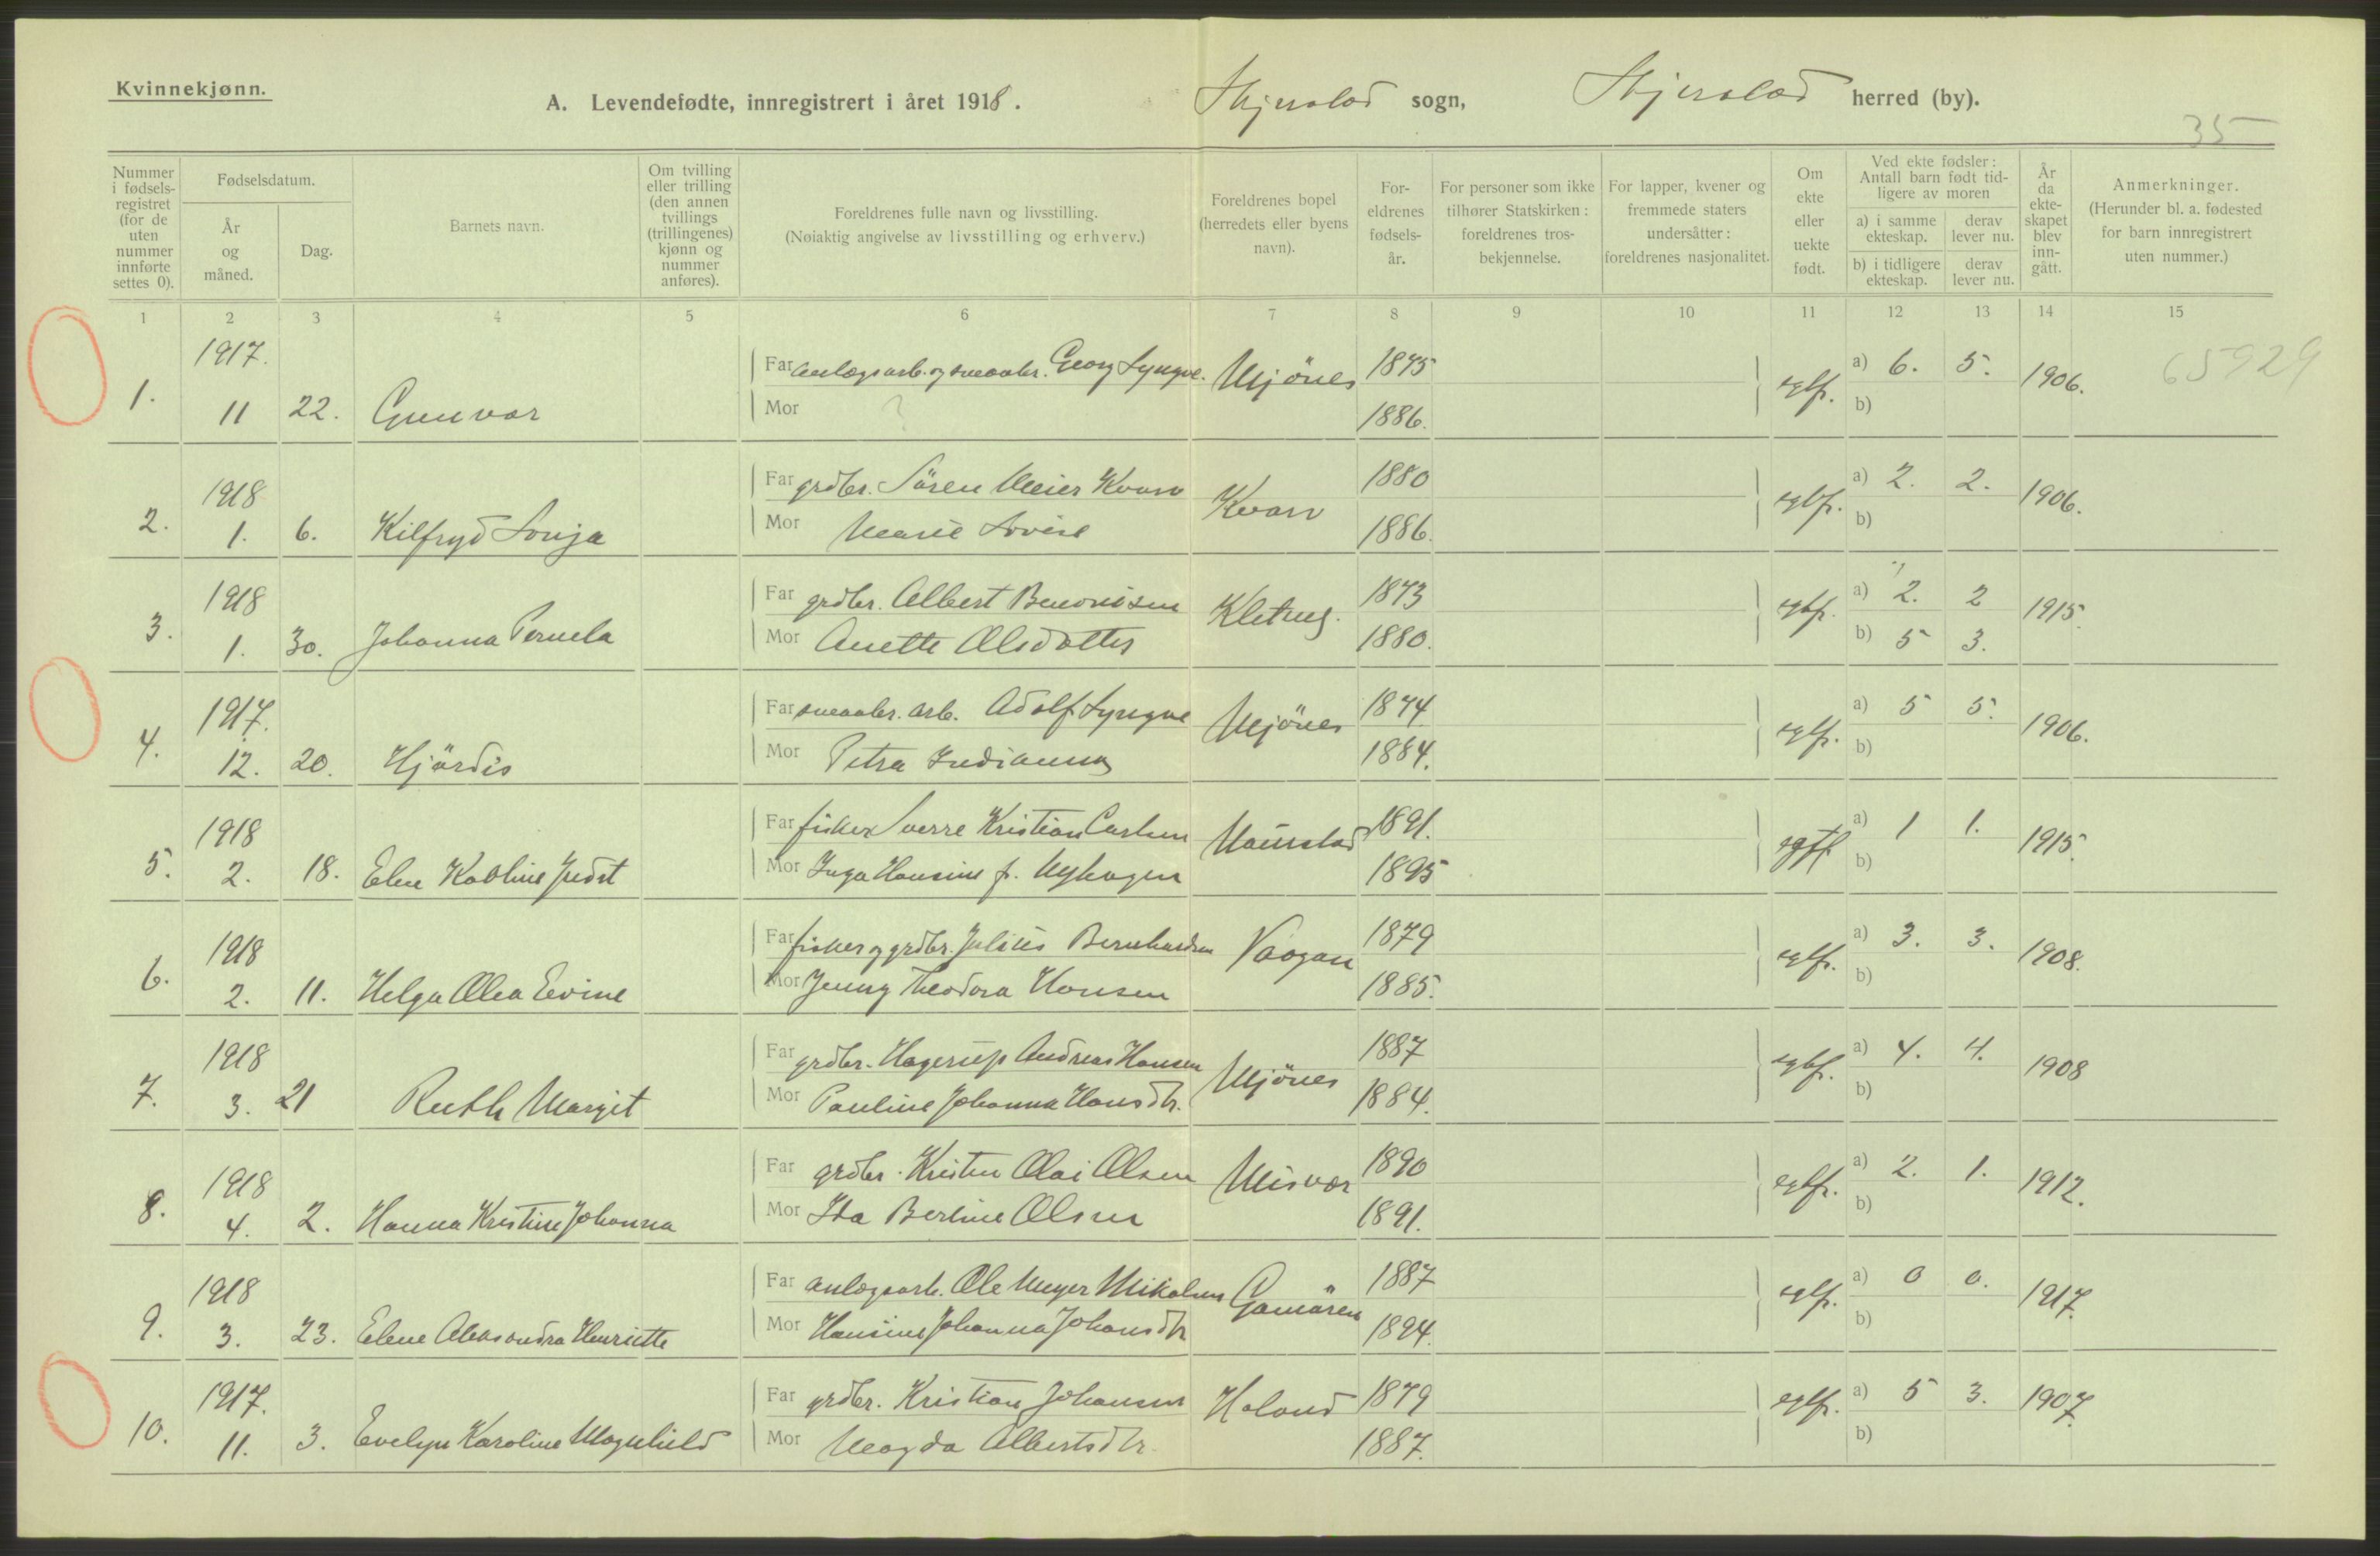 Kvinnekjønn.
A. Levendefødte, innregistrert i året 1918.
Skjerstad sogn, Skjerstad herred (by).
35
Nummer i fødselsregistret (for de uten nummer innførte settes 0).
Fødselsdatum.
År og måned.
Dag.
Barnets navn.
Om tvilling eller trilling (den annen tvillings (trillingenes) kjønn og nummer anføres).
Foreldrenes fulle navn og livsstilling.
(Nøiaktig angivelse av livsstilling og erhverv.)
Foreldrenes bopel (herredets eller byens navn).
Foreldrenes fødselsår.
For personer som ikke tilhører Statskirken: foreldrenes trosbekjennelse.
For lapper, kvener og fremmede staters undersåtter: foreldrenes nasjonalitet.
Om ekte eller uekte født.
Ved ekte fødsler: Antall barn født tidligere av moren
a) i samme ekteskap.
derav lever nu.
b) i tidligere ekteskap.
derav lever nu.
År da ekteskapet blev inngått.
Anmerkninger.
(Herunder bl. a. fødested for barn innregistrert uten nummer.)
1 2 3 4 5 6 7 8 9 10 11 12 13 14 15
1917. Far anlægsarb. og smaabr. Georg Lyngve. Mjönes 1875 a) 6. 5. 1906. 65929
1. 11 22. Gunvor Mor ? 1886. egtf. b)
1918 Far grdbr. Sören Meier Kvarv Kvarv 1880 a) 2. 2. 1906.
2. 1. 6. Kilfryd Sonja Mor Marie Lovise 1886. egtf. b)
1918 Far grdbr. Albert Benonisen Kletnes. 1873 a) 2. 2 1915.
3. 1. 30. Johanna Pernela Mor Anette Olsdatter 1880. egtf. b) 5 3.
1917. Far smaabr. arb. Adolf Lyngve Mjönes 1874 a) 5 5. 1906.
4. 12. 20. Hjördis Mor Petra Indianna 1884. egtf. b)
1918 Far fisker Sverre Kristian Carlsen 1891. a) 1 1. 1915.
5. 2. 18. Mor Inga Hansine f. Nyhagen 1895 egtf b)
1918 Far fisker og grdbr. Julius Bernhardsen Vaagan 1879 a) 3. 3. 1908.
6. 2. 11. Helga Olea Evine Mor Jenny Theodora Hansen 1885. egtf. b)
1918 Far grdbr. Hagerup Andreas Hansen Mjönes 1887 a) 4. 4. 1908
7. 3. 21 Ruth Margit Mor Pauline Johanna Hansdtr. 1884. egtf. b)
1918 Far grdbr. Kristen Olai Olsen Misvær 1890 a) 2. 1. 1912.
8. 4. 2. Hanna Kristine Johanna Mor Ida Berline Olsen 1891. egtf. b)
1918 Far anlægsarb. Ole Meyer Mikalsen 1887 a) 0 0. 1917.
9. 3. 23. Elene Aleksandra Henriette Mor Hansine Johanna Johansdtr 1894. egtf. b)
1917. Far grdbr. Kristian Johansen Haland 1879 a) 5 3. 1907.
10. 11. 3. Evelyn Karoline Magnhild Mor Magda Albertsdtr. 1887. egtf. b)